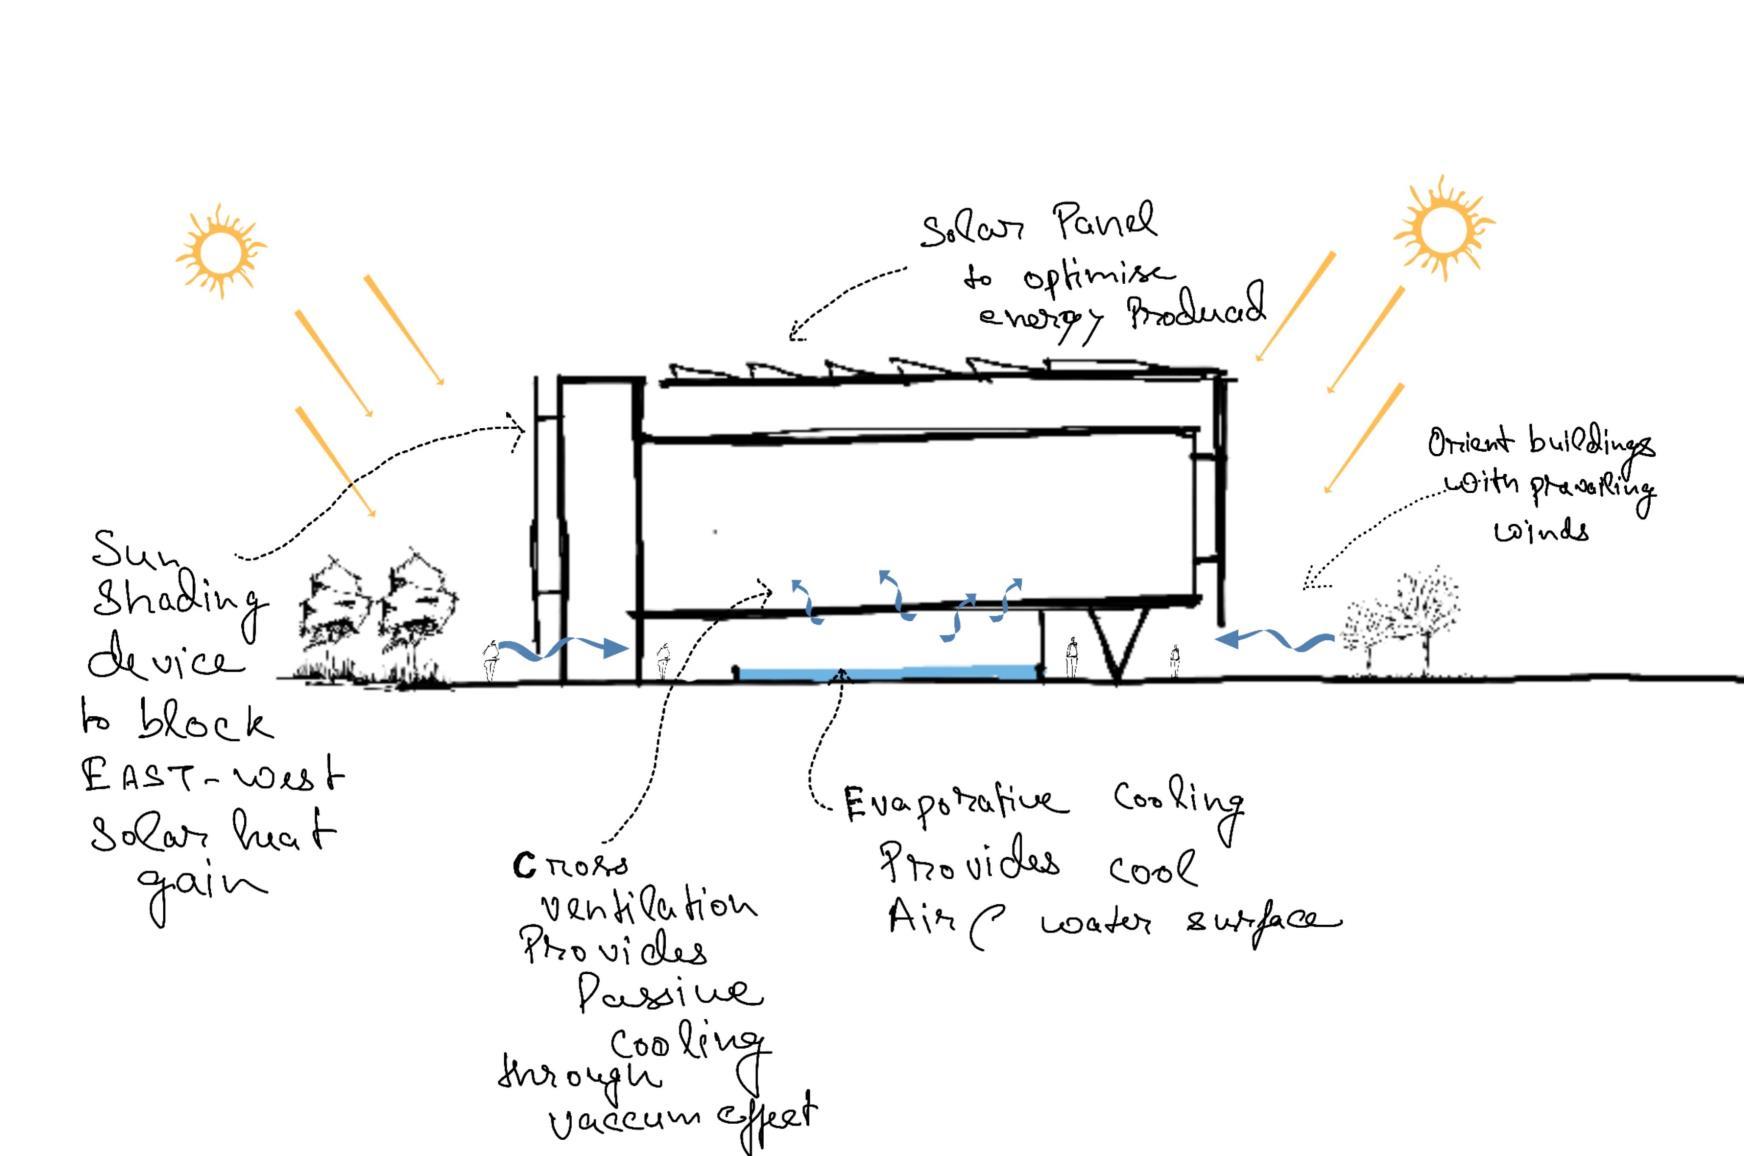 Solar Panel
to optimise
energy Produced
Orient buildings
with prevailing
winds
Sun
Shading
device
to block
EAST-west
solar heat
gain
Cross
ventilation
Provides
Passive
cooling
through
vaccum effect
Evaporative cooling
Provides cool
Air ( water surface